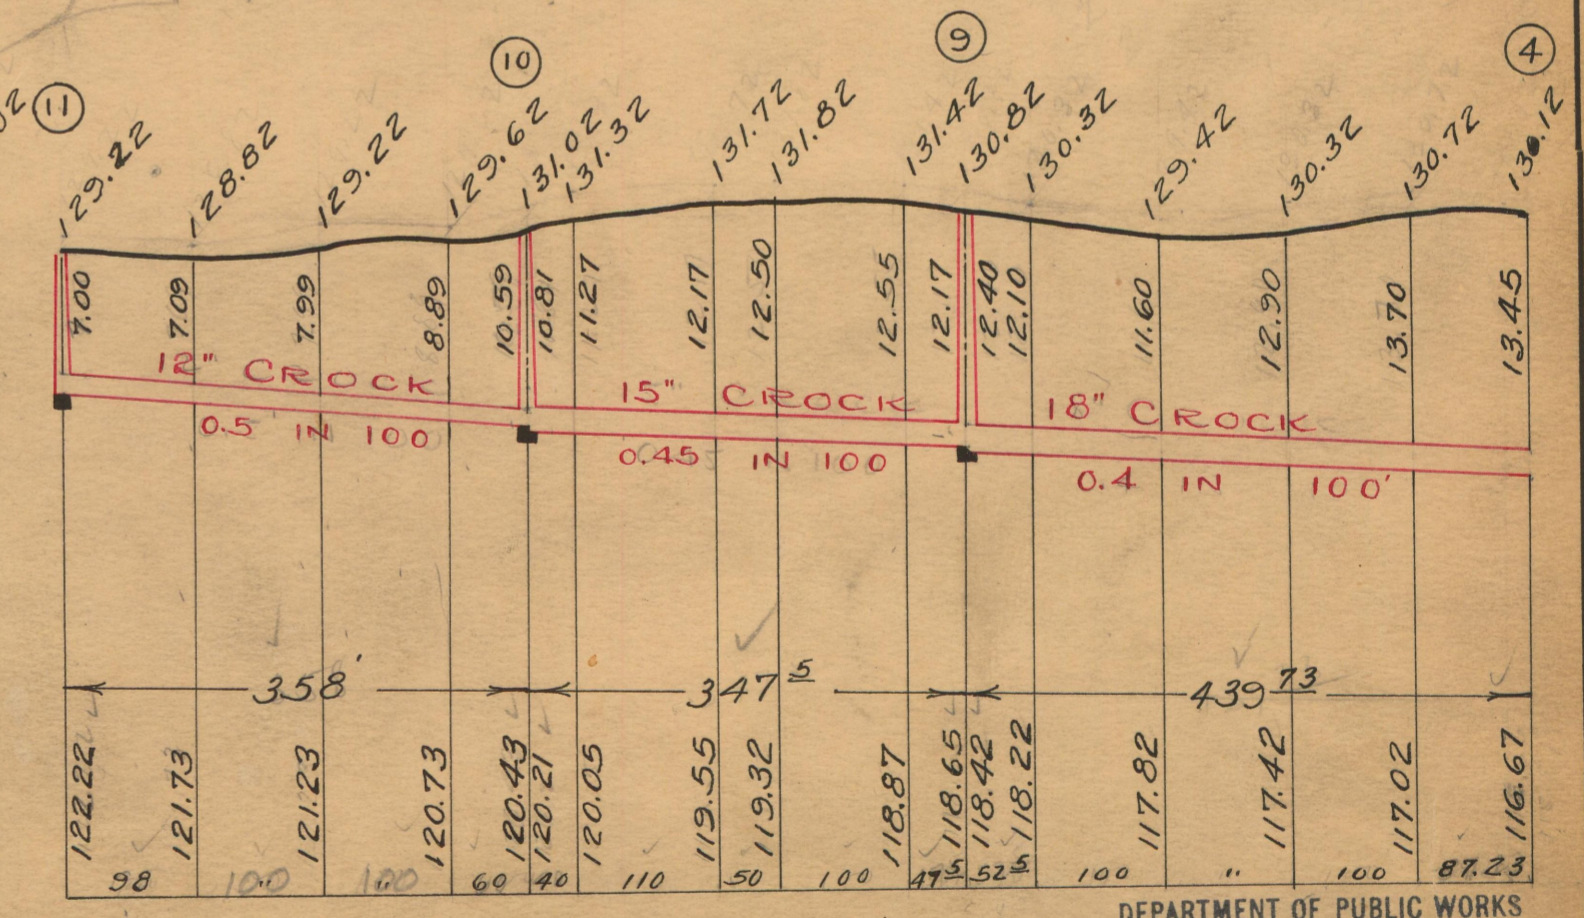 11 10 9 4
129.22 128.82 129.22 129.62 131.02 131.32 131.72 131.82 131.42 130.82 130.32 129.42 130.32 130.72 130.12
7.00 7.09 7.99 8.89 10.59 10.81 11.27 12.17 12.50 12.55 12.17 12.40 12.10 11.60 12.90 13.70 13.45
12" CROCK 15" CROCK 18" CROCK
0.5 IN 100 0.45 IN 100 0.4 IN 100'
358' 347 5 439 73
122.22 121.73 121.23 120.73 120.43 120.21 120.05 119.55 119.32 118.87 118.65 118.42 118.22 117.82 117.42 117.02 116.67
98 100 " 100 " 60 40 110 50 100 47 5 52 5 100 " 100 87.23
DEPARTMENT OF PUBLIC WORKS